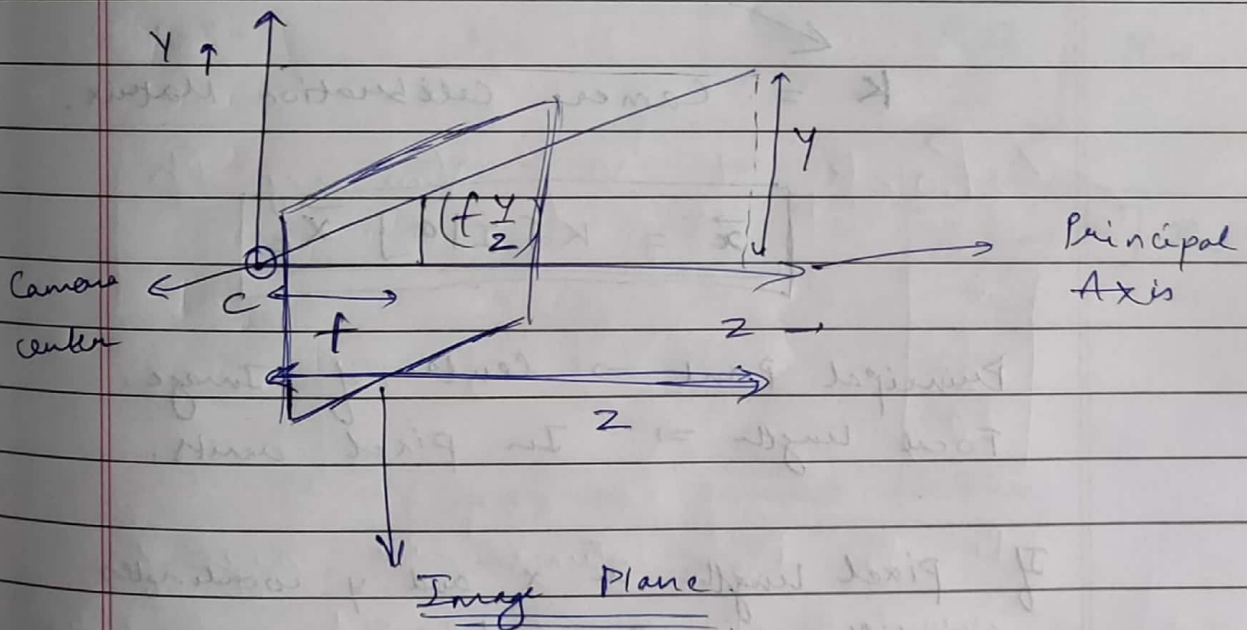 Y ↑
Y
(f Y/Z)
Principal
Axis
Camera
center
C
f
Z →
Z
Image Plane